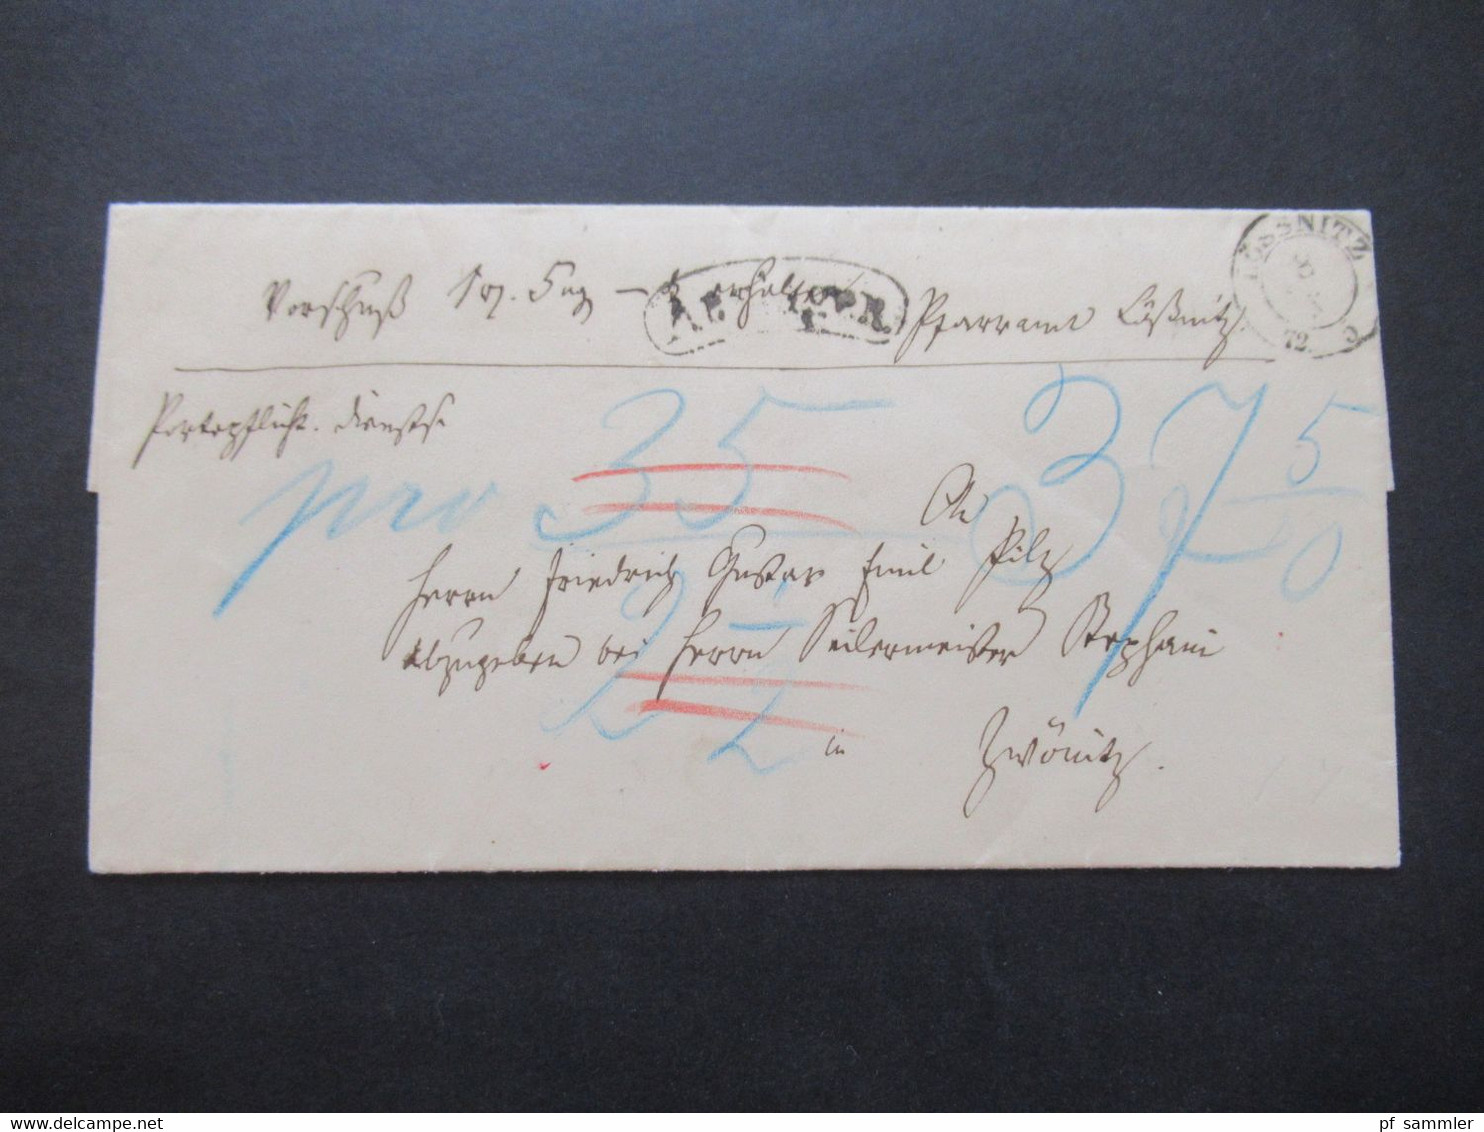 Vorschuß 1 rℓ. 5 ng — erhalten Pfarramt Lößnitz.
LÖSSNITZ
72
Portopflicht. Diensts.
pro 35 37 5/10
An
Herrn Friedrich Gustav Emil Pilz
abzugeben bei Herrn Seilermeister Stephani
2 1/2
in Zwönitz.
www.delcampe.net
pf sammler